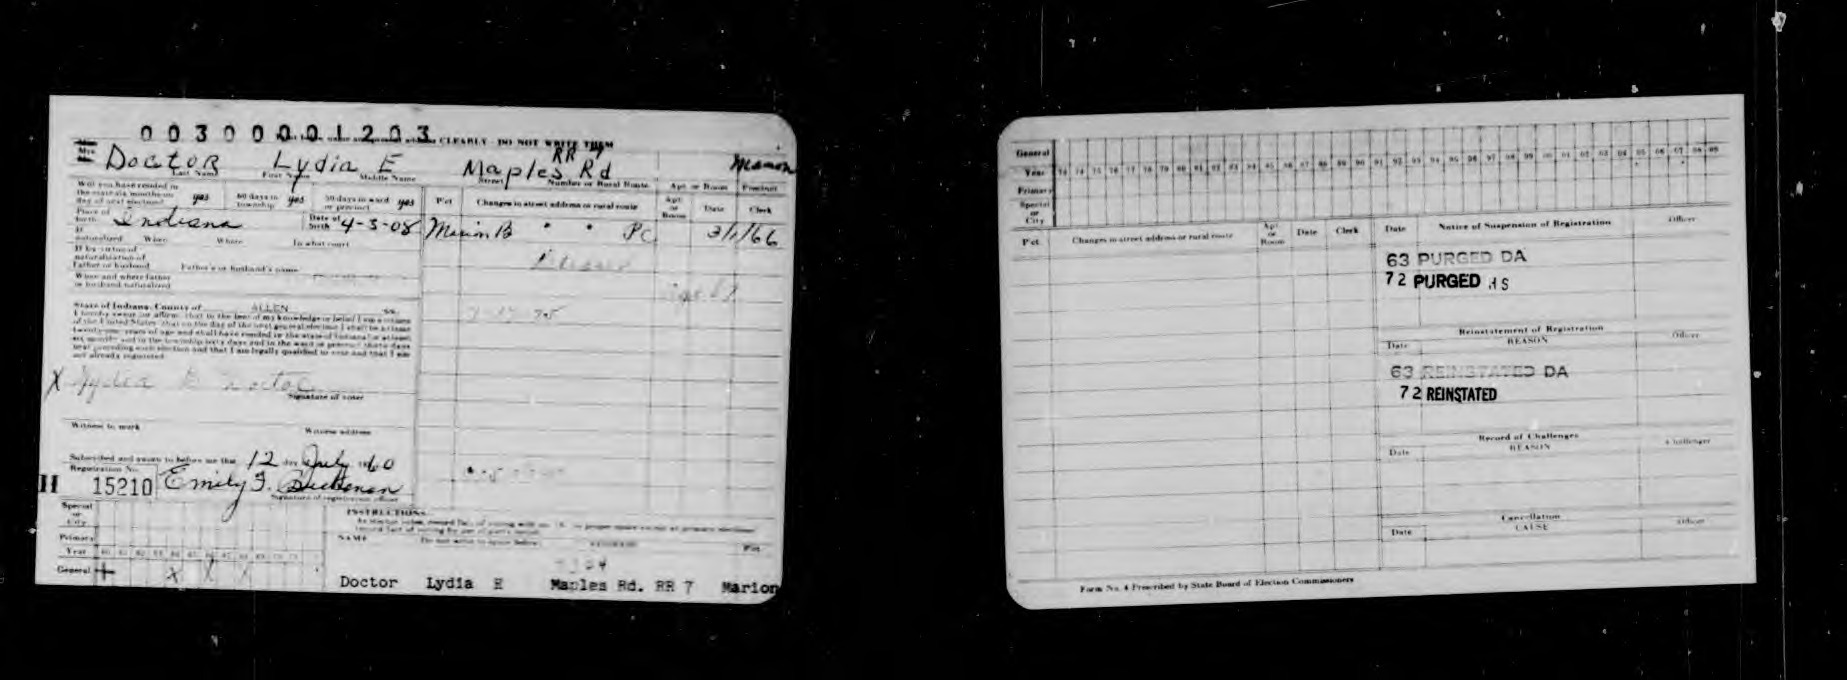 003000001203
CLEARLY - DO NOT WRITE THEM
Mrs. Doctor Lydia E Maples Rd RR Marion
Last Name First Name Middle Name Street Number or Rural Route Apt. or Room Precinct
Will you have resided in
the state six months on
day of next election? yes 60 days in township yes 30 days in ward or precinct yes
P'ct Changes in street address or rural route Apt. or Room Date Clerk
Place of birth Indiana Date of birth 4-3-08
Marion B " " PC 3/1/66
If naturalized When Where In what court
If by virtue of
naturalization of
Father or husband Father's or husband's name
When and where father
or husband naturalized
State of Indiana, County of ALLEN ss:
I hereby swear (or affirm) that to the best of my knowledge or belief I am a citizen
of the United States that on the day of the next general election I shall be at least
twenty-one years of age and shall have resided in the state of Indiana for at least
six months and in the township sixty days and in the ward or precinct thirty days
next preceding such election and that I am legally qualified to vote and that I am
not already registered.
X Lydia E Doctor
Signature of voter
Witness to mark Witness address
Subscribed and sworn to before me this 12 day July 1960
Registration No.
H 15210 Emily F.
Signature of registration officer
Special
or
City
Primary
Year
General X X X
INSTRUCTIONS
NAME P'ct
Doctor Lydia E Maples Rd. RR 7 Marion
General
Year 73 74 75 76 77 78 79 80 81 82 83 84 85 86 87 88 89 90 91 92 93 94 95 96 97 98 99 00 01 02 03 04 05 06 07 08 09
Primary
Special
or
City
P'ct Changes in street address or rural route Apt. or Room Date Clerk
Date Notice of Suspension of Registration Officer
63 PURGED DA
72 PURGED HS
Reinstatement of Registration
Date REASON Officer
63 REINSTATED DA
72 REINSTATED
Record of Challenges
Date REASON Challenger
Cancellation
Date CAUSE Officer
Form No. 4 Prescribed by State Board of Election Commissioners